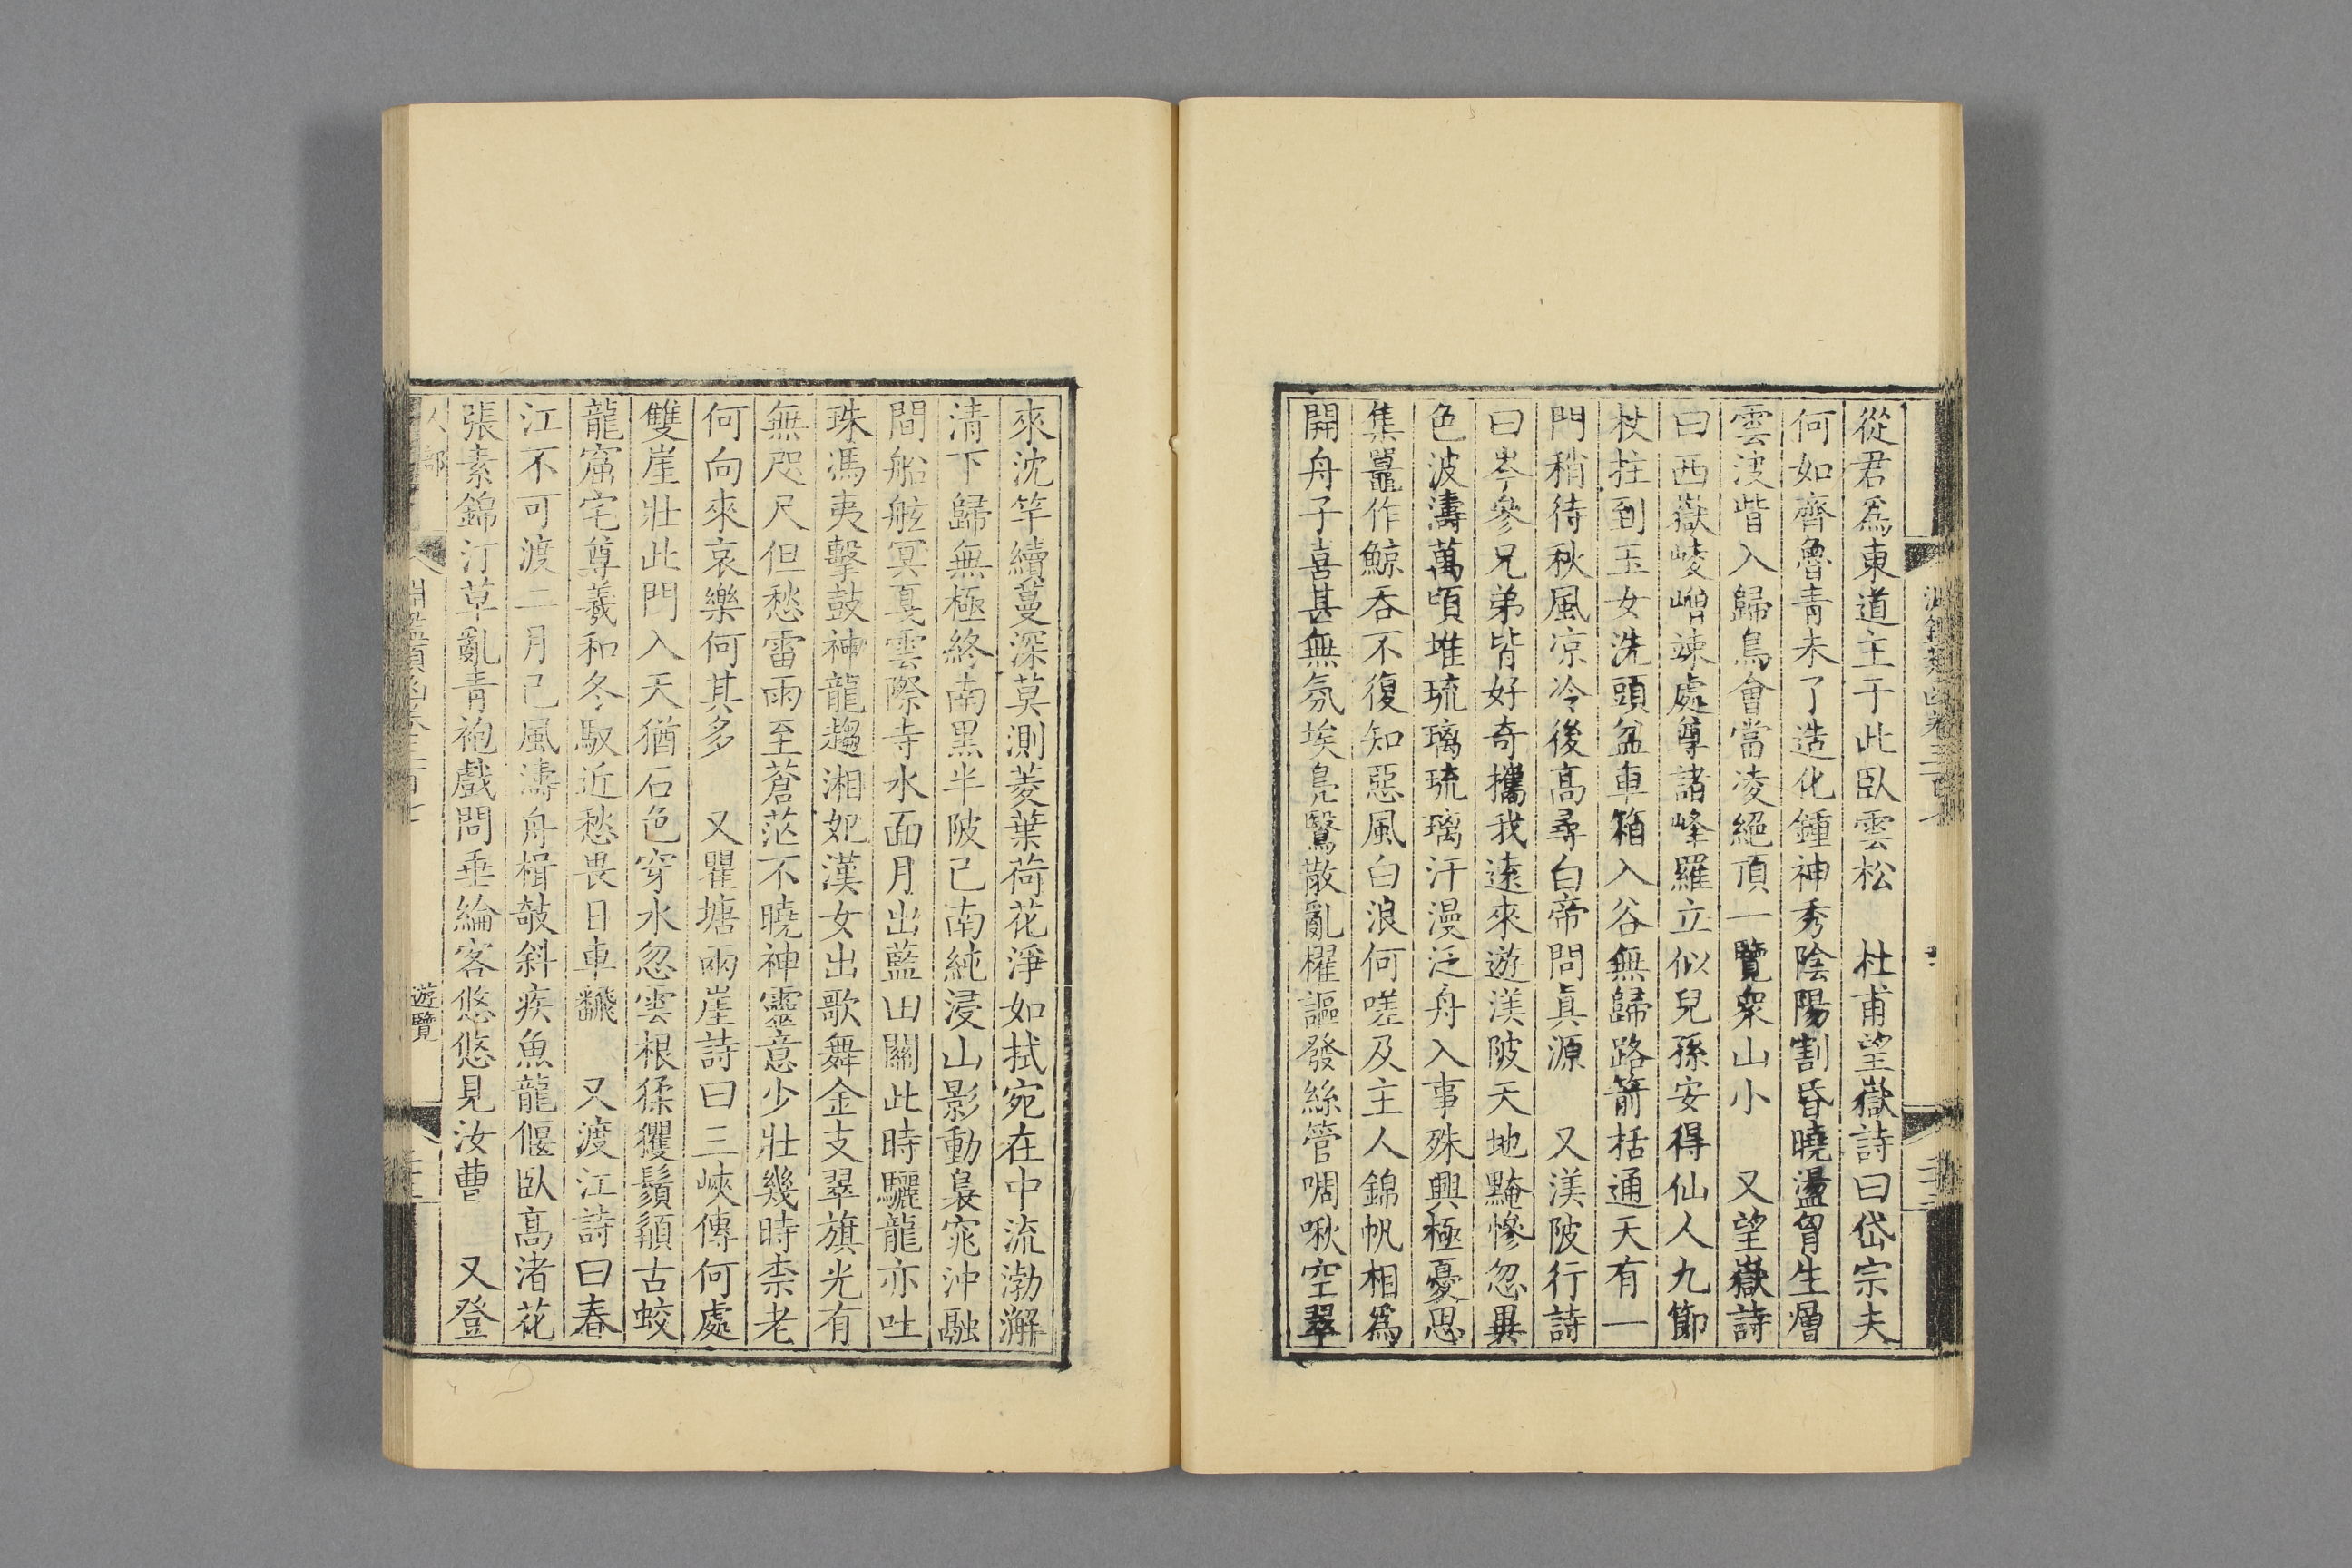 從君爲東道主于此臥雲松　杜甫望嶽詩曰岱宗夫
何如齊魯青未了造化鍾神秀陰陽割昏曉盪胷生層
雲決眥入歸鳥會當凌絕頂一覽衆山小　又望嶽詩
曰西嶽崚嶒竦處尊諸峰羅立似兒孫安得仙人九節
杖拄到玉女洗頭盆車箱入谷無歸路箭栝通天有一
門稍待秋風凉冷後高尋白帝問眞源　又渼陂行詩
曰岑參兄弟皆好奇攜我遠來遊渼陂天地黤慘忽異
色波濤萬頃堆琉璃琉璃汗漫泛舟入事殊興極憂思
集鼉作鯨吞不復知惡風白浪何嗟及主人錦帆相爲
開舟子喜甚無氛埃鳧鷖散亂櫂謳發絲管啁啾空翠
來沈竿續蔓深莫測菱葉荷花淨如拭宛在中流渤澥
清下歸無極終南黑半陂已南純浸山影動裊窕沖融
間船舷冥戛雲際寺水面月出藍田關此時驪龍亦吐
珠馮夷擊鼓神龍趨湘妃漢女出歌舞金支翠旗光有
無咫尺但愁雷雨至蒼茫不曉神靈意少壯幾時柰老
何向來哀樂何其多　又瞿塘兩崖詩曰三峽傳何處
雙崖壯此門入天猶石色穿水忽雲根猱玃鬚髥古蛟
龍窟宅尊羲和冬馭近愁畏日車飜　又渡江詩曰春
江不可渡二月已風濤舟楫攲斜疾魚龍偃臥高渚花
張素錦汀草亂青袍戲問垂綸客悠悠見汝曹　又登
遊覽